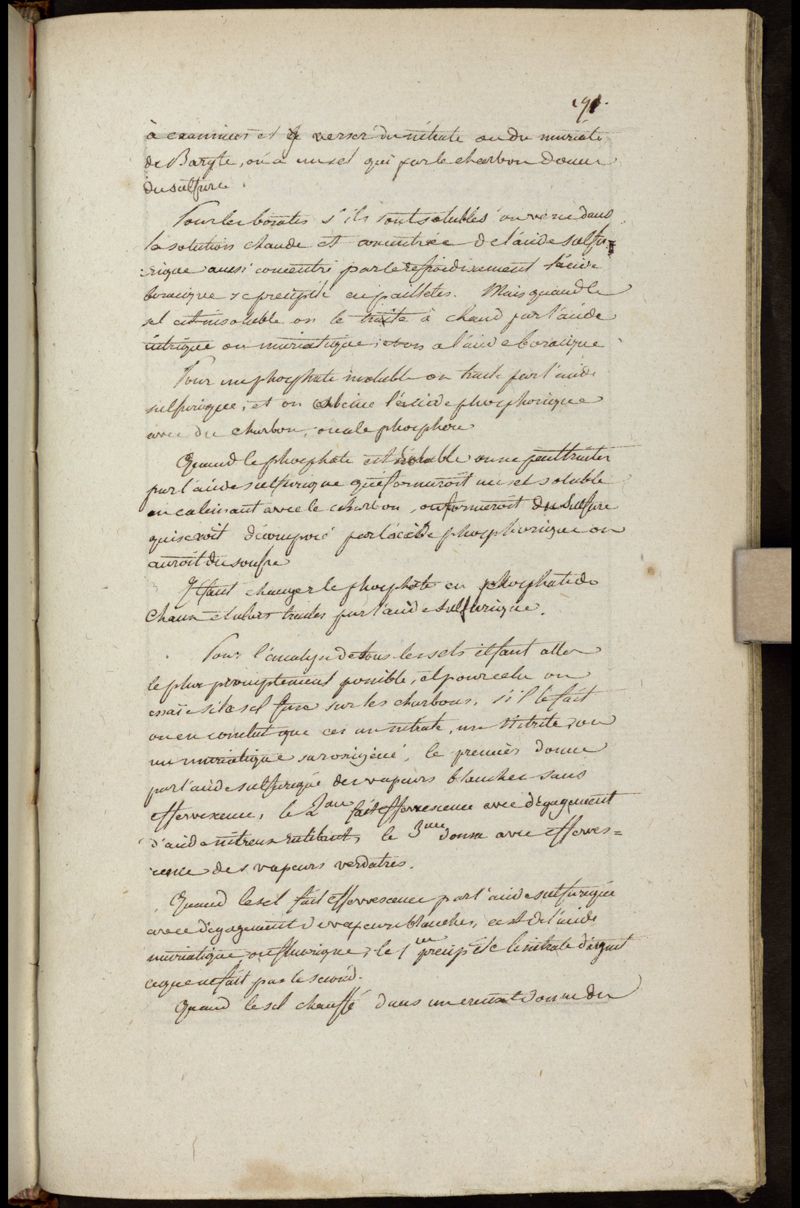 191.
à examiner et y verser du nitrate ou du muriate
de Baryte, on a un sel qui par le charbon donne
du sulfure.
Pour les borates s'ils sont solubles on verse dans
la solution chaude et concentrée de l'acide sulfu=
rique aussi concentré par le refroidissement l'acide
boracique se précipite en paillettes. Mais quand le
sel est insoluble on le traite à chaud par l'acide
nitrique ou muriatique; on a l'acide boracique.
Pour un phosphate insoluble on traite par l'acide
sulfurique, et on calcine l'acide phosphorique
avec du charbon, on a le phosphore
Quand le phosphate est soluble on ne peut traiter
par l'acide sulfurique qui formeroit un sel soluble
en calcinant avec le charbon, on formeroit du sulfure
qui seroit décomposé par l'acide phosphorique on
auroit du soufre
Il faut changer le phosphate en phosphate de
chaux et alors traiter par l'acide sulfurique.
Pour l'analyse de tous les sels il faut aller
le plus promptement possible, et pour cela on
essaie si le sel fuse sur les charbons, s'il le fait
on en conclut que c'est un nitrate, un nitrite, ou
un muriatique suroxigéné, le premier donne
par l'acide sulfurique des vapeurs blanches sans
effervescence, le 2eme fait effervescence avec dégagement
d'acide nitreux rutilant, le 3eme donne avec efferves=
cence des vapeurs verdatres.
Quand le sel fait effervescence par l'acide sulfurique
avec dégagement de vapeurs blanches, c'est de l'acide
muriatique ou fluorique; le 1er précipite le nitrate d'argent
ce que ne fait pas le second.
Quand le sel chauffé dans un creuset donne du